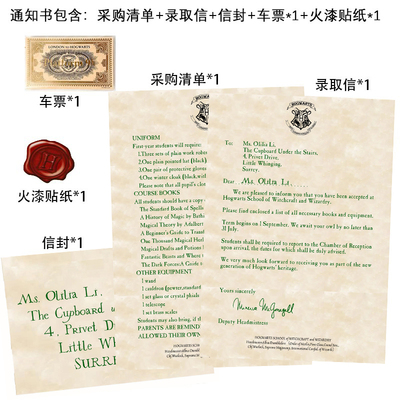 通知书包含：采购清单+录取信+信封+车票*1+火漆贴纸*1
LONDON to HOGWARTS
车票*1
火漆贴纸*1
信封*1
采购清单*1
录取信*1
HOGWARTS
UNIFORM
First year students will require:
1.Three sets of plain work robes
2.One plain pointed hat (black)
3.One pair of protective gloves
4.One winter cloak (black,
Please note that all pupil's clo
COURSE BOOKS
All students should have a copy
The Standard Book of Spells
A History of Magic by Bath
Magical Theory by Adalbert
A Beginner's Guide to Trans
One Thousand Magical Her
Magical Drafts and Potions
Fantastic Beasts and Where
The Dark Forces:A Guide
OTHER EQUIPMENT
1 wand
1 cauldron (pewter, standard
1 set glass or crystal phials
1 telescope
1 set brass scales
Students may also bring, if th
PARENTS ARE REMIND
ALLOWED THEIR OWN
HOGWARTS
To: Ms. Olilia Li,
The Cupboard Under the Stairs,
4, Privet Drive,
Little Whinging,
Surrey.
Dear Ms. Olilia Li,
We are pleased to inform you that you have been accepted at
Hogwarts School of Witchcraft and Wizardry.
Please find enclosed a list of all necessary books and equipment.
Term begins on 1 September. We await your owl by no later than
31 July.
Students shall be required to report to the Chamber of Reception
upon arrival, the dates for which shall be duly advised.
We very much look forward to receiving you as part of the new
generation of Hogwarts' heritage.
Yours sincerely,
Minerva McGonagall
Deputy Headmistress
HOGWARTS SCHOOL of WITCHCRAFT and WIZARDRY
Ms. Olilia Li,
The Cupboard u
4, Privet D
Little Wh
SURRE